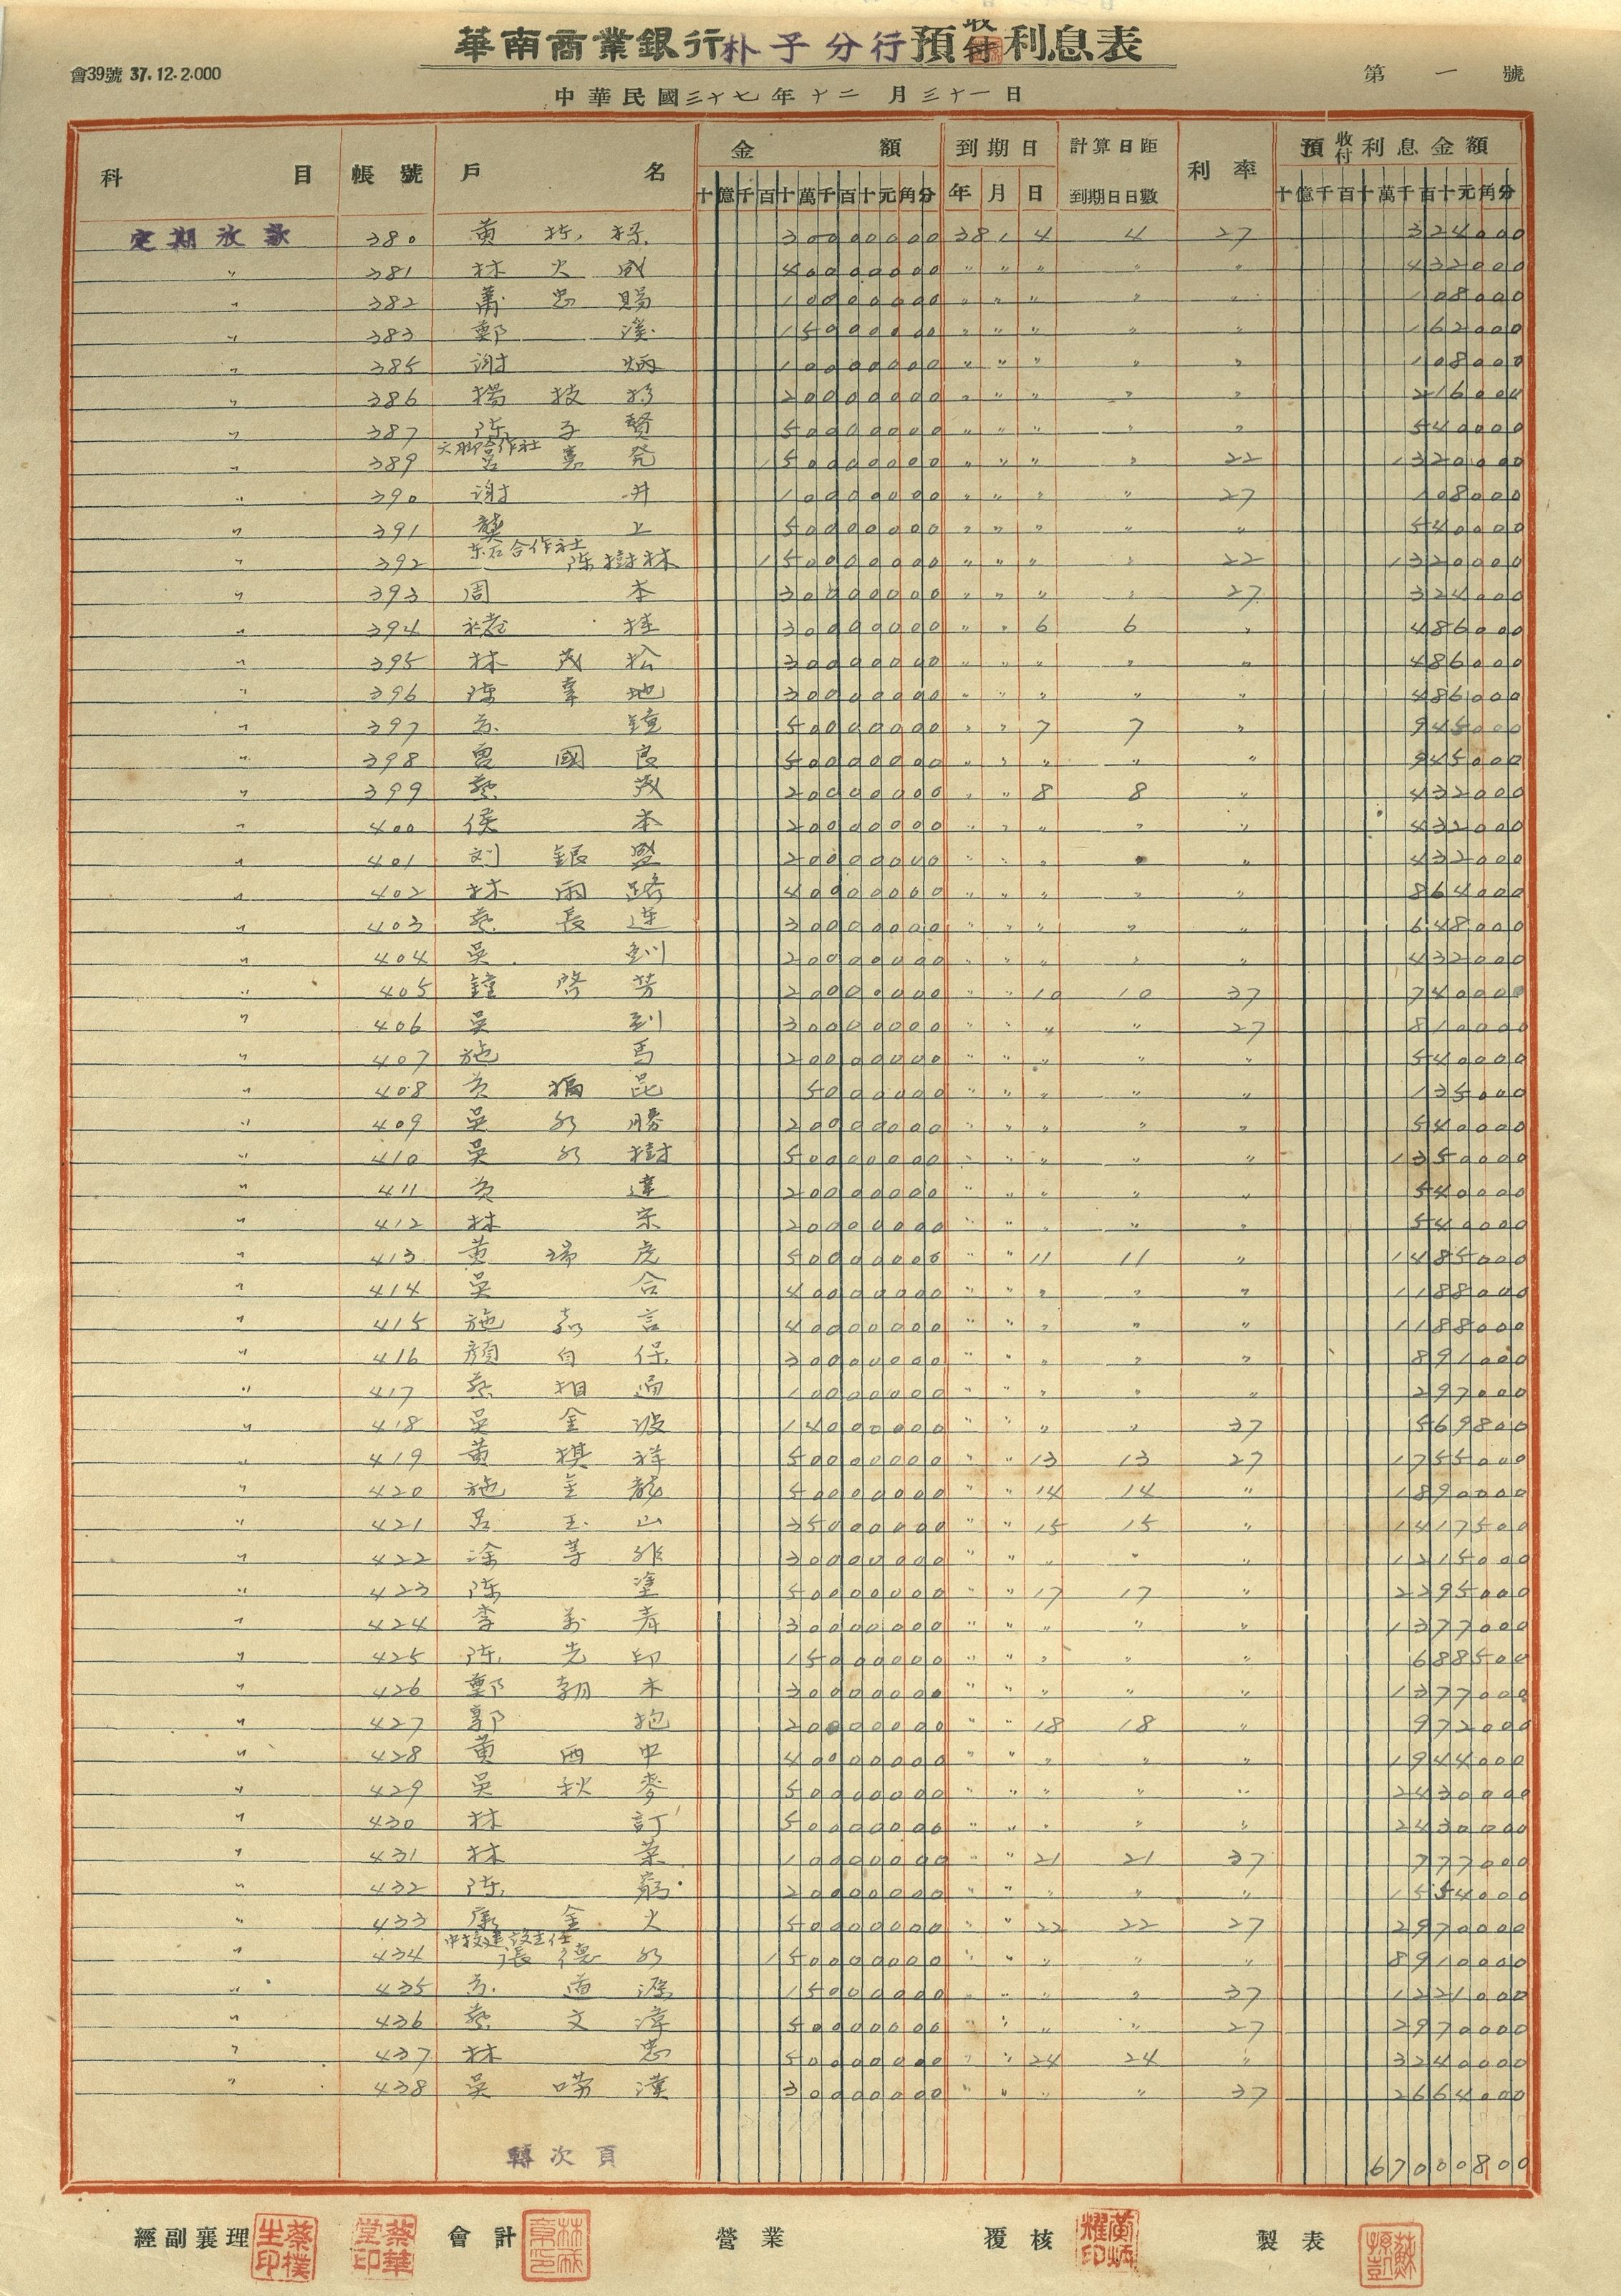 華南商業銀行朴子分行預收付利息表
會39號 37.12.2.000
第一號
中華民國三十七年十二月三十一日
科目 帳號 戶名 金額 到期日 計算日距到期日日數 利率 預收付利息金額
十億千百十萬千百十元角分 年 月 日 十億千百十萬千百十元角分
定期放款 380 黃 30000000 38 1 4 4 27 324000
〃 381 林火盛 40000000 〃 〃 〃 〃 〃 432000
〃 382 蕭忠賜 10000000 〃 〃 〃 〃 〃 108000
〃 383 鄭漢 15000000 〃 〃 〃 〃 〃 162000
〃 385 謝炳 10000000 〃 〃 〃 〃 〃 108000
〃 386 楊枝 20000000 〃 〃 〃 〃 〃 216000
〃 387 陈子賢 50000000 〃 〃 〃 〃 〃 540000
〃 389 六脚合作社 150000000 〃 〃 〃 〃 22 1320000
〃 390 謝井 10000000 〃 〃 〃 〃 27 108000
〃 391 龔上 50000000 〃 〃 〃 〃 〃 540000
〃 392 东石合作社 陈樹林 150000000 〃 〃 〃 〃 22 1320000
〃 393 周本 30000000 〃 〃 〃 〃 27 324000
〃 394 30000000 〃 〃 6 6 〃 486000
〃 395 林茂松 30000000 〃 〃 〃 〃 〃 486000
〃 396 陈地 30000000 〃 〃 〃 〃 〃 486000
〃 397 鐘 50000000 〃 〃 7 7 〃 945000
〃 398 曾國良 50000000 〃 〃 〃 〃 〃 945000
〃 399 蔡茂 20000000 〃 〃 8 8 〃 432000
〃 400 侯本 20000000 〃 〃 〃 〃 〃 432000
〃 401 刘銀盛 20000000 〃 〃 〃 〃 〃 432000
〃 402 林雨路 40000000 〃 〃 〃 〃 〃 864000
〃 403 蔡長連 30000000 〃 〃 〃 〃 〃 648000
〃 404 吳到 20000000 〃 〃 〃 〃 〃 432000
〃 405 鐘啓芳 20000000 〃 〃 10 10 37 740000
〃 406 吳到 30000000 〃 〃 〃 〃 27 810000
〃 407 施馬 20000000 〃 〃 〃 〃 〃 540000
〃 408 昆 5000000 〃 〃 〃 〃 〃 135000
〃 409 吳勝 20000000 〃 〃 〃 〃 〃 540000
〃 410 吳樹 50000000 〃 〃 〃 〃 〃 1350000
〃 411 達 20000000 〃 〃 〃 〃 〃 540000
〃 412 林宗 20000000 〃 〃 〃 〃 〃 540000
〃 413 黃瑞虎 50000000 〃 〃 11 11 〃 1485000
〃 414 吳合 40000000 〃 〃 〃 〃 〃 1188000
〃 415 施言 40000000 〃 〃 〃 〃 〃 1188000
〃 416 顏自保 30000000 〃 〃 〃 〃 〃 891000
〃 417 蔡相通 10000000 〃 〃 〃 〃 〃 297000
〃 418 吳金波 14000000 〃 〃 〃 〃 37 569800
〃 419 黃棋祥 50000000 〃 〃 13 13 27 1755000
〃 420 施金龍 50000000 〃 〃 14 14 〃 1890000
〃 421 呂玉山 35000000 〃 〃 15 15 〃 1417500
〃 422 涂 30000000 〃 〃 〃 〃 〃 1215000
〃 423 陈塗 50000000 〃 〃 17 17 〃 2295000
〃 424 李 30000000 〃 〃 〃 〃 〃 1377000
〃 425 陈先印 15000000 〃 〃 〃 〃 〃 688500
〃 426 鄭朝木 30000000 〃 〃 〃 〃 〃 1377000
〃 427 郭抱 20000000 〃 〃 18 18 〃 972000
〃 428 黃西中 40000000 〃 〃 〃 〃 〃 1944000
〃 429 吳秋麥 50000000 〃 〃 〃 〃 〃 2430000
〃 430 林訂 50000000 〃 〃 〃 〃 〃 2430000
〃 431 林菜 10000000 〃 〃 21 21 37 777000
〃 432 陈 20000000 〃 〃 〃 〃 〃 1554000
〃 433 康金火 50000000 〃 〃 22 22 27 2970000
〃 434 張德 150000000 〃 〃 〃 〃 〃 8910000
〃 435 15000000 〃 〃 〃 〃 37 1221000
〃 436 蔡文 50000000 〃 〃 〃 〃 27 2970000
〃 437 林忠 50000000 〃 〃 24 24 〃 3240000
〃 438 吳嘮漢 30000000 〃 〃 〃 〃 37 2664000
轉次頁 67000800
經副襄理 會計 營業 覆核 製表